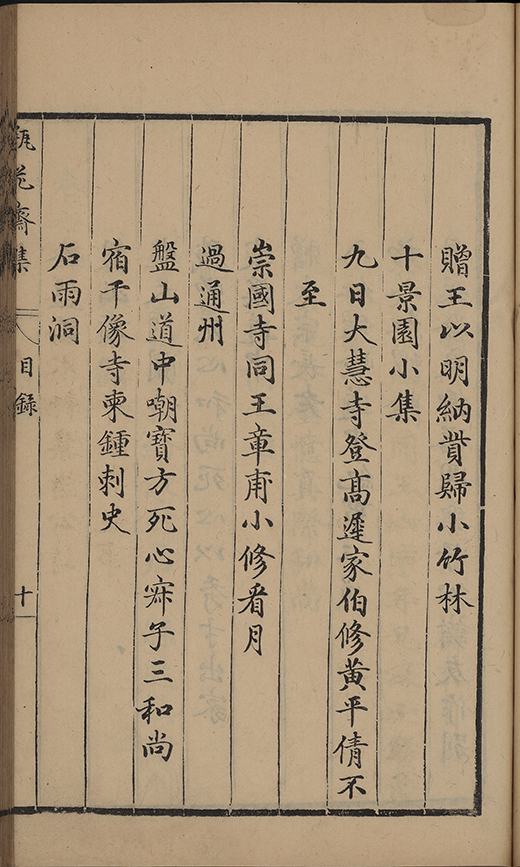 贈王以明納貲歸小竹林
十景園小集
九日大慧寺登高遲家伯修黃平倩不
至
崇國寺同王章甫小修看月
過通州
盤山道中嘲寶方死心寐子三和尚
宿千像寺柬鍾刺史
石雨洞
瓶花齋集 目錄 十一